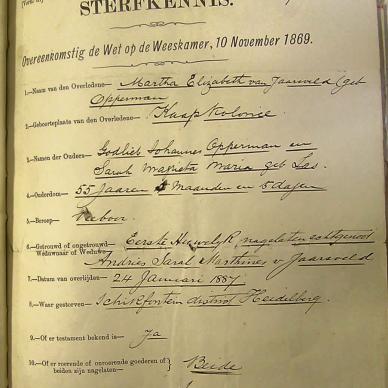 STERFKENNIS.
Overeenkomstig de Wet op de Weeskamer, 10 November 1869.
1.—Naam van den Overledene— Martha Elizabeth van Jaarsveld (geb
Opperman
2.—Geboorteplaats van den Overledene— Kaap Kolonie
3.—Namen der Ouders— Godlieb Johannes Opperman en
Sarah Magrieta Maria geb Las.
4.—Ouderdom— 55 Jaaren Maanden en 5 dagen
5.—Beroep— Veeboer
6.—Getrouwd of ongetrouwd— Eerste Huwelyk nagelaten echtgenoot
Weduwnaar of Weduwe Andries Sarel Marthines v Jaarsveld
7.—Datum van overlijden— 24 Januari 1887
8.—Waar gestorven— district Heidelberg.
9.—Of er testament bekend is— Ja
10.—Of er roerende of onroerende goederen of
beiden zijn nagelaten— } Beide